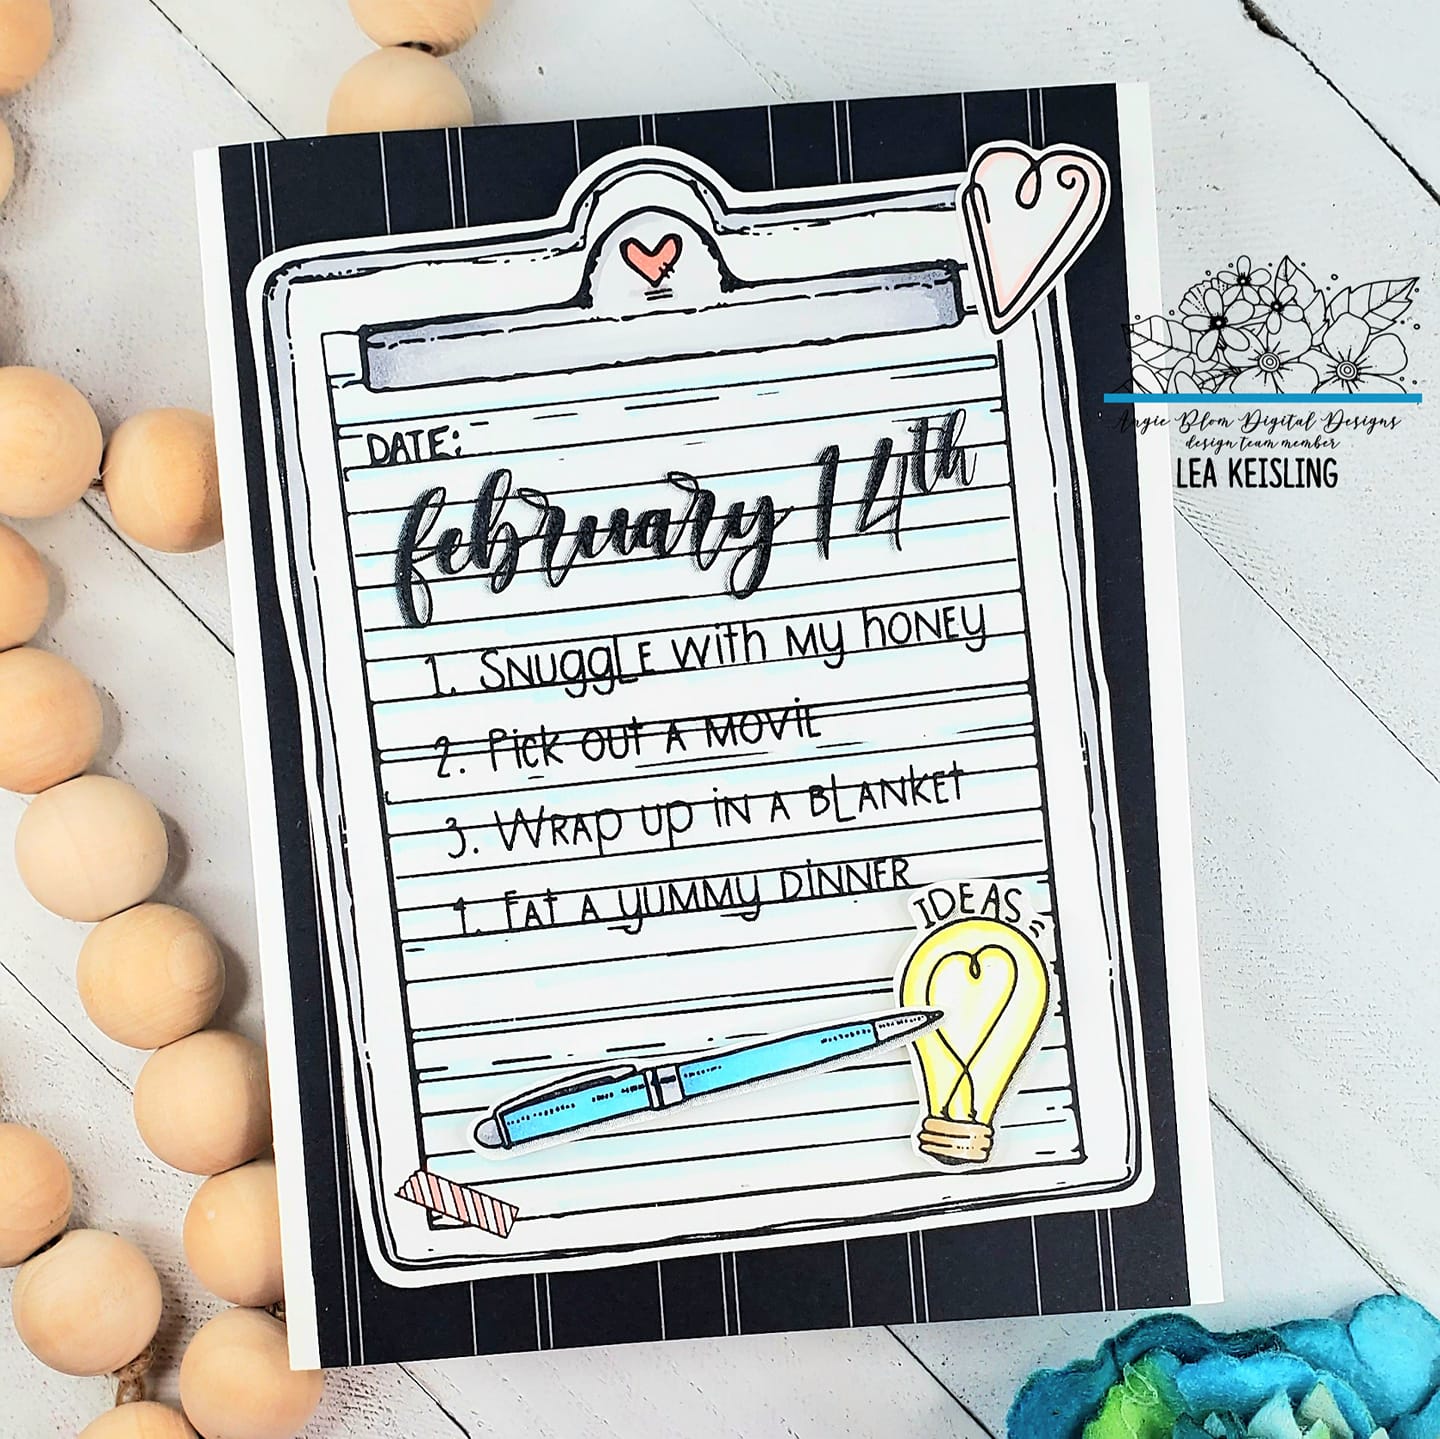 DATE:
february 14th
1. SNuggLE with My hONEy
2. Pick out A MOVIE
3. WRAP up iN A BLANKEt
4. EAt A yuMMy DiNNER
IDEAS
Angie Blom Digital Designs
design team member
LEA KEISLING